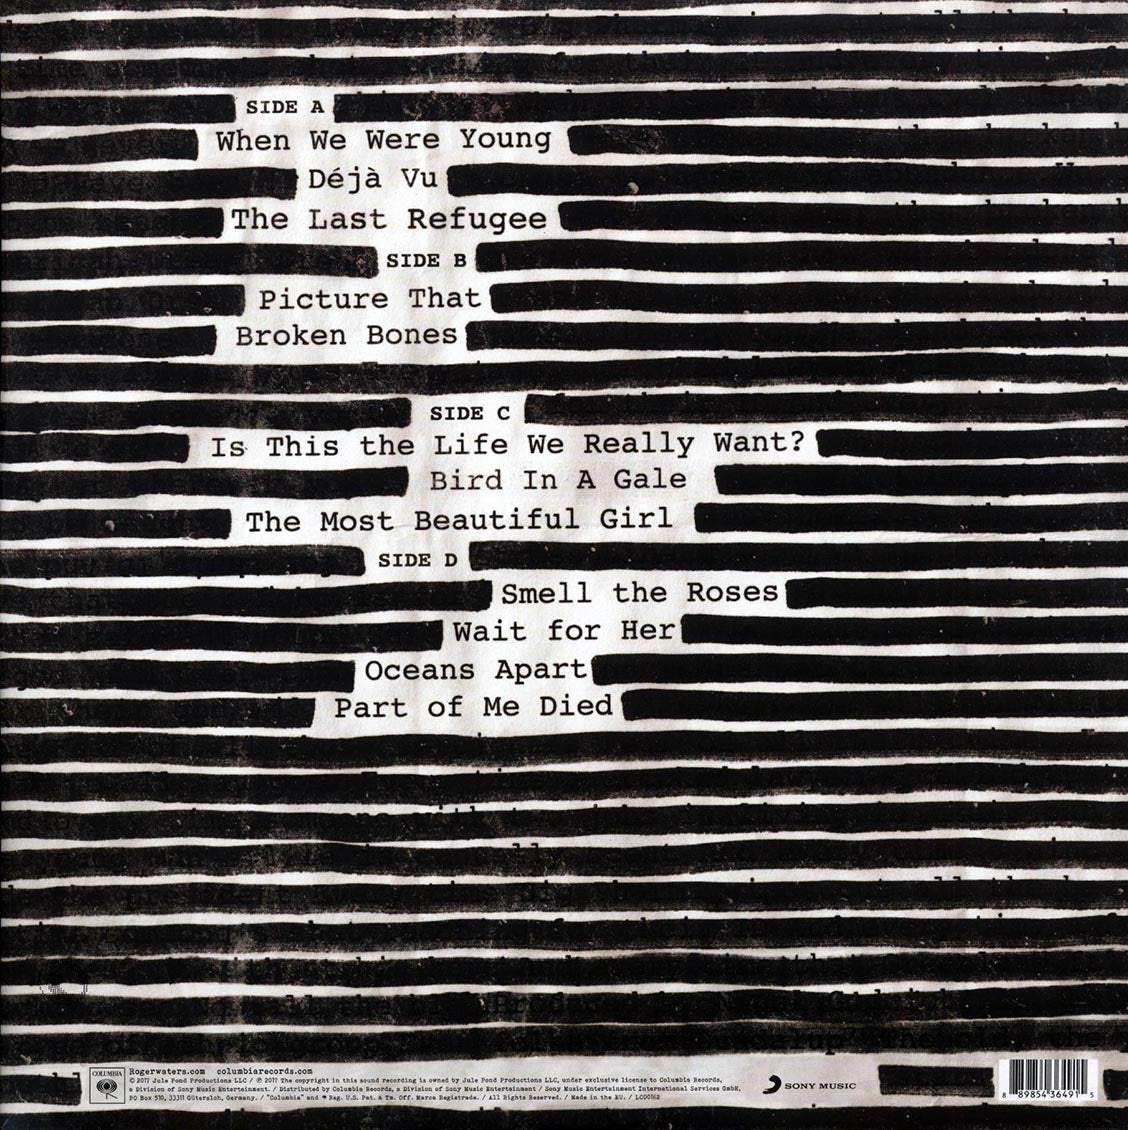 SIDE A
When We Were Young
Déjà Vu
The Last Refugee
SIDE B
Picture That
Broken Bones
SIDE C
Is This the Life We Really Want?
Bird In A Gale
The Most Beautiful Girl
SIDE D
Smell the Roses
Wait for Her
Oceans Apart
Part of Me Died
COLUMBIA
Rogerwaters.com columbiarecords.com
© 2017 Jule Pond Productions LLC / ℗ 2017 The copyright in this sound recording is owned by Jule Pond Productions LLC, under exclusive license to Columbia Records,
a Division of Sony Music Entertainment. / Distributed by Columbia Records, a Division of Sony Music Entertainment / Sony Music Entertainment International Services GmbH,
PO Box 510, 33311 Gütersloh, Germany. / "Columbia" and Reg. U.S. Pat. & Tm. Off. Marca Registrada. / All Rights Reserved. / Made in the EU. / LC00162
SONY MUSIC
8 89854 36491 5